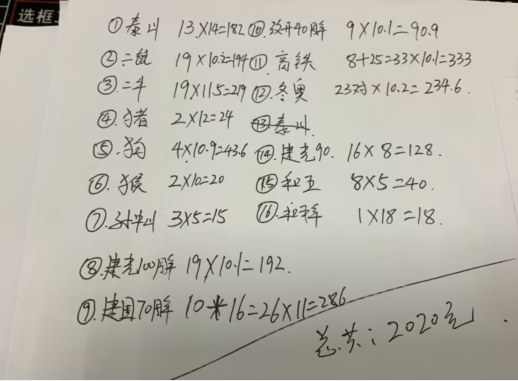 选框
①泰山 13×14=182 ⑩改开40周 9×10.1=90.9
②二鼠 19×10.2=194 ⑪高铁 8+25=33×10.1=333
③二牛 19×11.5=219 ⑫冬奥 23对×10.2=234.6.
④.猪 2×12=24 ⑬泰山
⑤.狗 4×10.9=43.6 ⑭.建党90. 16×8=128.
⑥.猴 2×10=20 ⑮和五 8×5=40.
⑦.孙中山 3×5=15 ⑯.和 1×18=18.
⑧建党100周 19×10.1=192.
⑨.建国70周 10+16=26×11=286
总共:2020元.